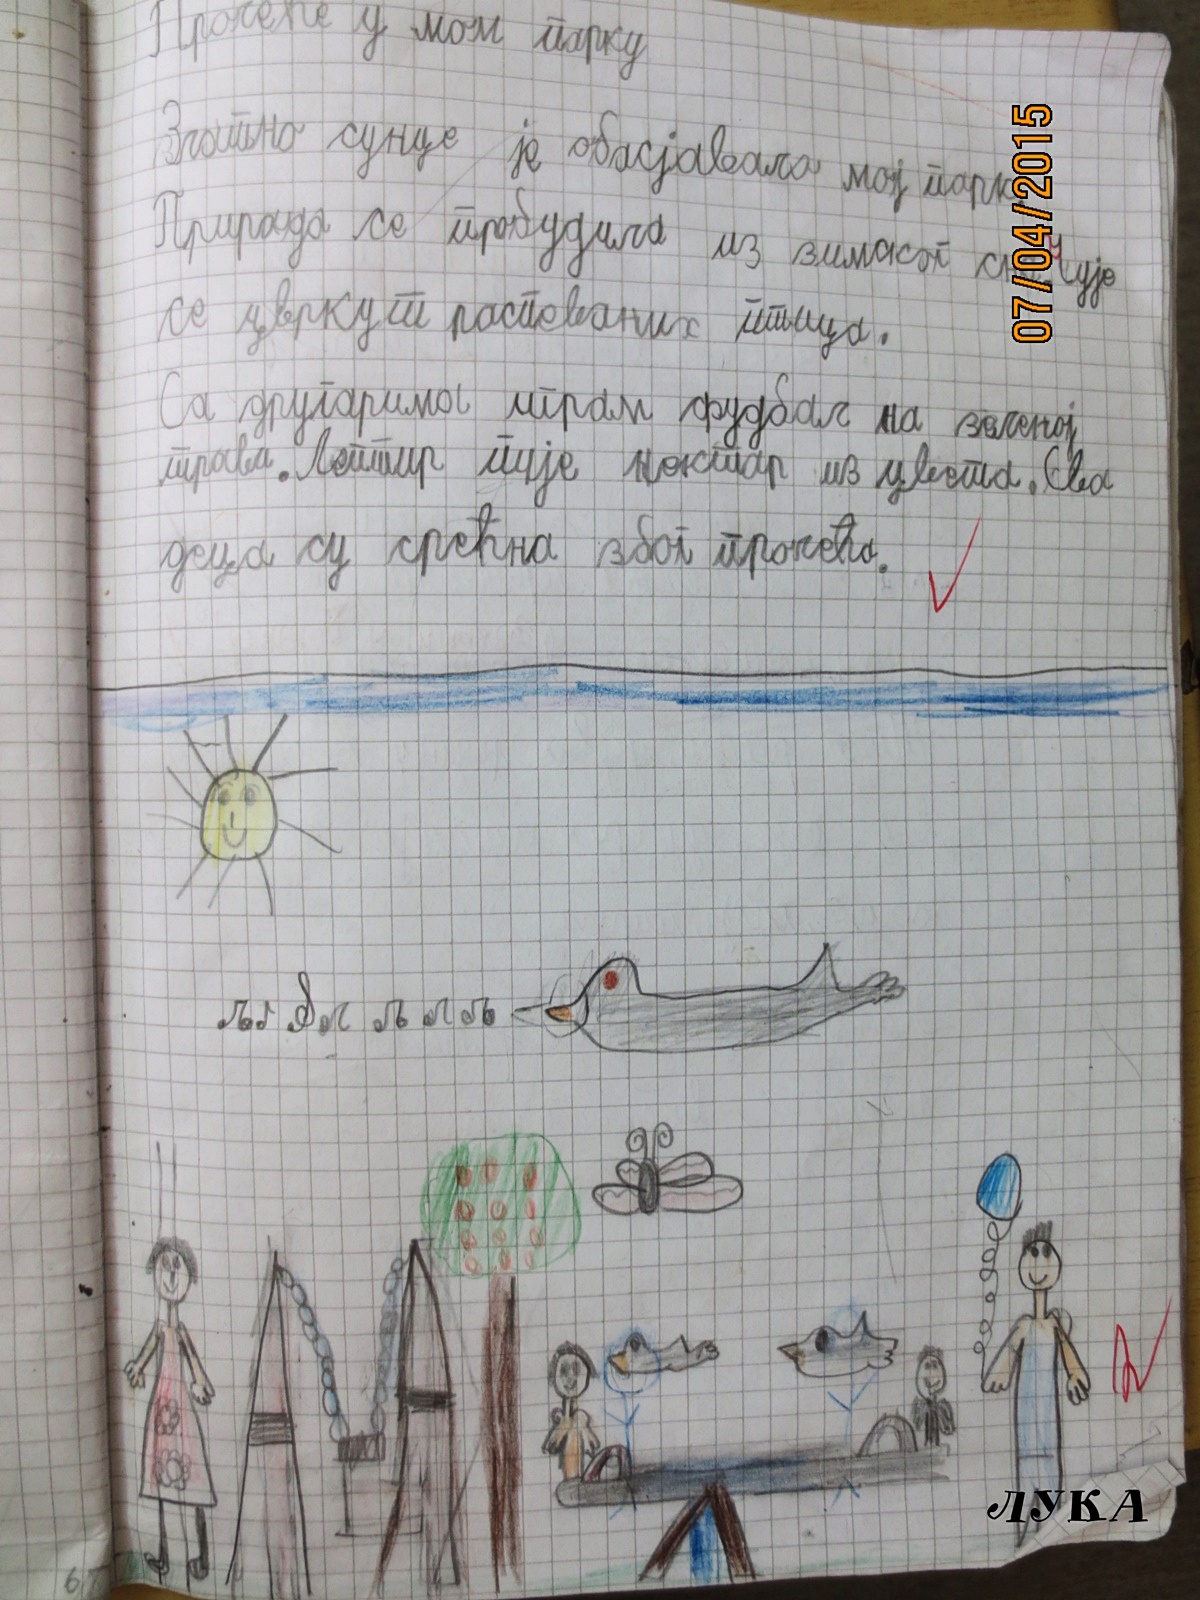 Пролеће у мом парку
Златно сунце је обасјавало мој парк.
Природа се пробудила из зимског сна. Чује
се цвркут распеваних птица.
Са другарима играм фудбал на зеленој
трави. Лептир пије нектар из цвета. Сва
деца су срећна због пролећа.
07/04/2015
ЛУКА